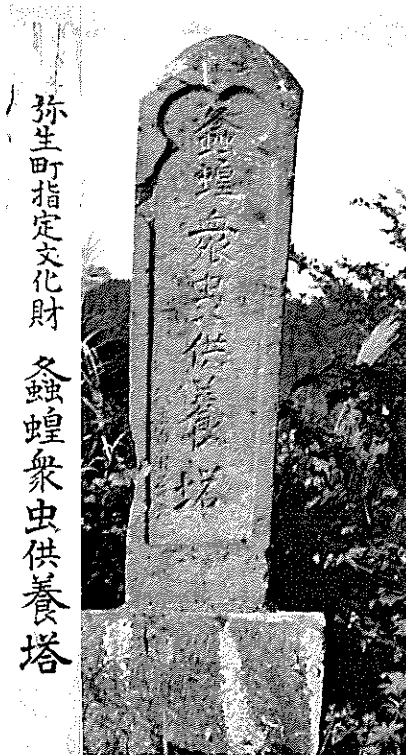 弥生町指定文化財　螽蝗衆虫供養塔
螽蝗衆虫供養塔